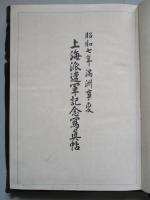 昭和七年満洲事変
上海派遣軍記念寫真帖